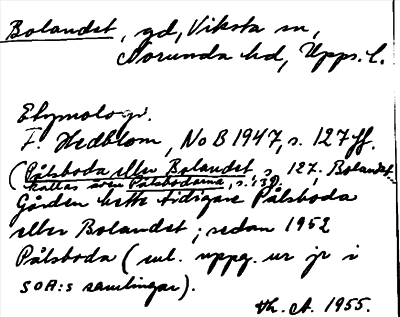 Bolandet, gd, Viksta sn,
Norunda hd, Upps. l.
Etymologi.
F. Hedblom, NoB 1947, s. 127 ff.
(Pålsboda eller Bolandet, s. 127, Bolandet
kallas även Pålsbodarna, s. 132).
Gården hette tidigare Pålsboda
eller Bolandet; sedan 1952
Pålsboda (enl. uppg. ur jr i
SOA:s samlingar).
Th. A. 1955.